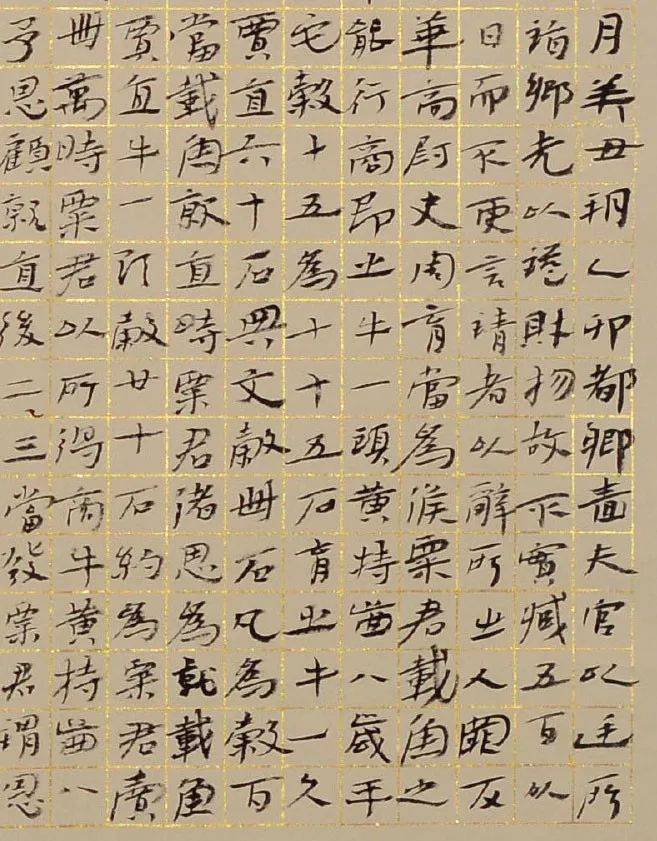 月癸丑朔乙卯都鄉嗇夫官以廷所
詣鄉先以證財物故不實臧五百以
日而不更言請者以辭所出入罪反
華商尉史周育當為候粟君載魚之
能行商即出牛一頭黃特齒八歲平
它穀十五為十十五石育出牛一久
賈直六十石與文穀卌石凡為穀百
當載魚就直時粟君恩為就載魚
賈直牛一頭穀廿十石約為粟君賣
卌萬時粟君以所得商牛黃特齒八
予恩顧就直後二〻三當發粟君謂恩